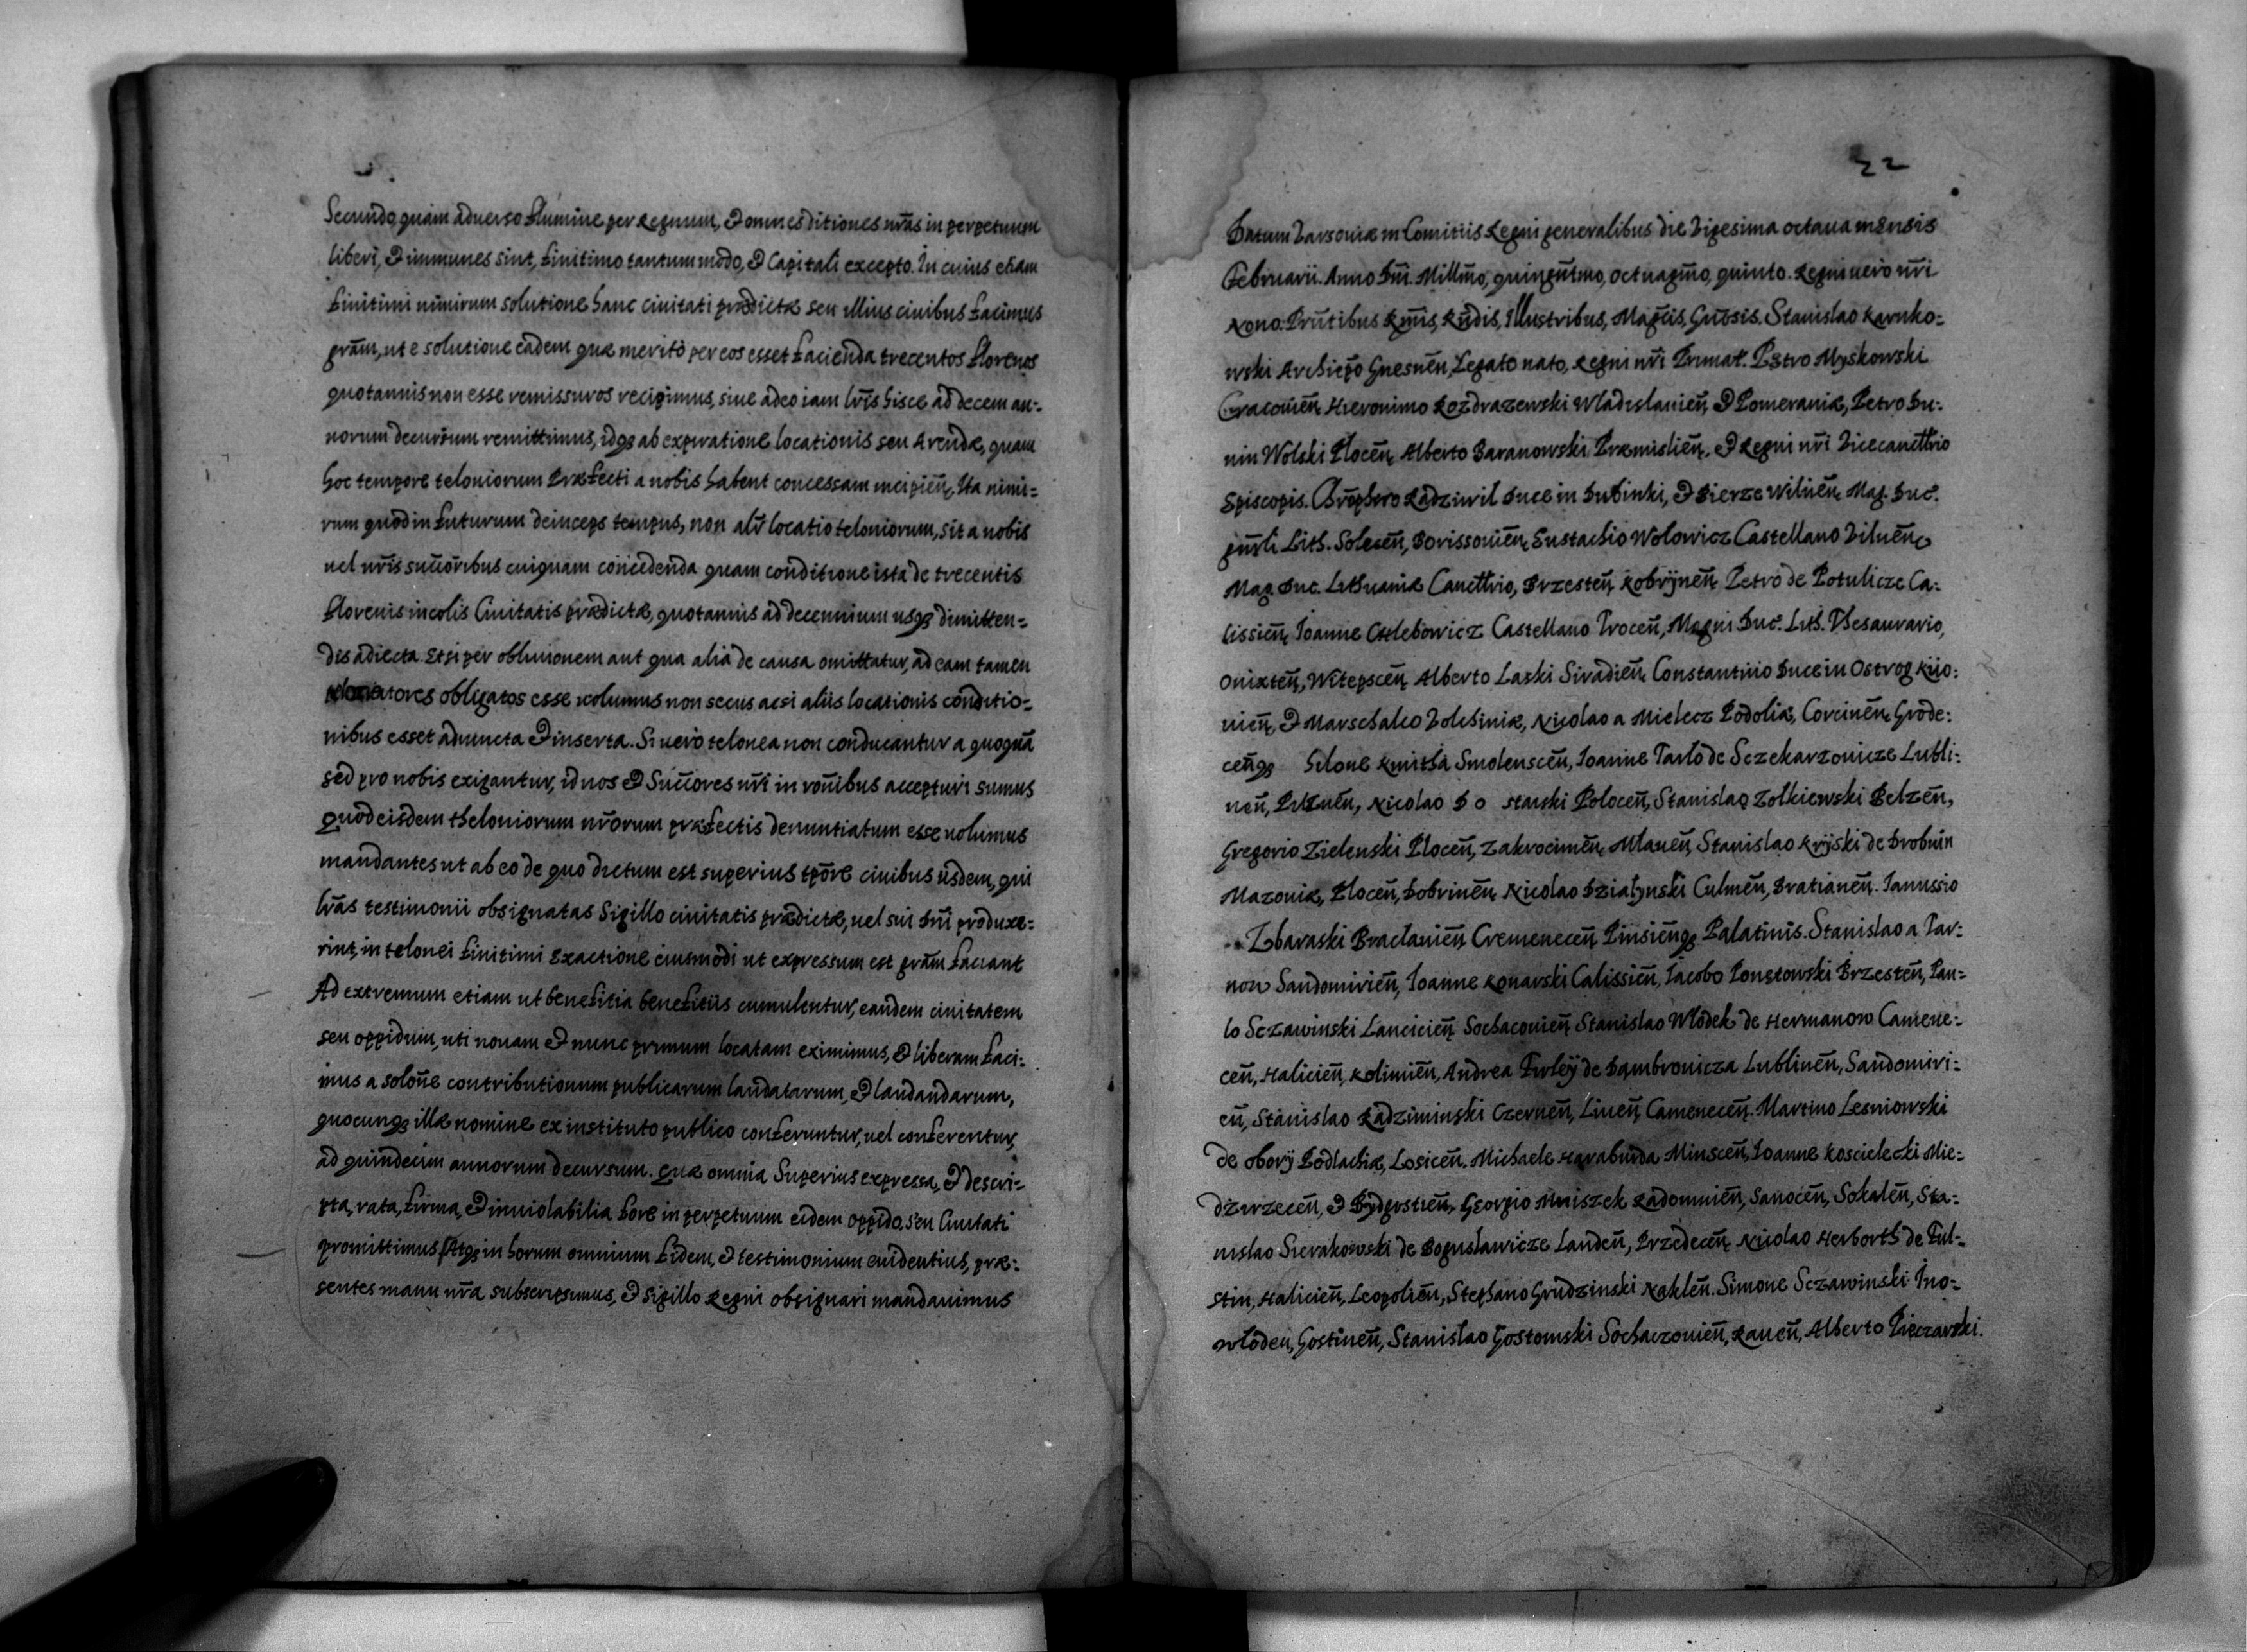 Secundo, quàm aduerso flumine per Regnum, & omnes ditiones nr̃as in perpetuum
liberi, & immunes sint, finitimo tantummodo, & Capitali excepto. In cuius etiam
finitimi nimirum solutione hanc ciuitati prædictæ seu illius ciuibus facimus
gra͂m, ut e solutione eadem quæ meritò per eos esset facienda trecentos florenos
quotannis non esse remissuros recipimus, siue adeo iam lr̃is hisce ad decem an-
norum decursum remittimus, idq3 ab expiratione locationis seu Arendæ, quam
hoc tempore teloniorum Præfecti a nobis habent concessam incipieñ. Ita nimi=
rum quod in futurum deinceps tempus, non alr̃ locatio teloniorum, sit a nobis
uel nr̃is succ̃oribus cuiquam concedenda quam conditione ista de trecentis
florenis incolis Ciuitatis prædictæ, quotannis ad decennium usq3 dimitten=
dis adiecta. Etsi per obliuionem aut qua alia de causa omittatur, ad eam tamen
obligatos esse uolumus non secus ac si aliis locationis conditio=
nibus esset adiuncta & inserta. Si uerò telonea non conducantur a quoquã
sed pro nobis exigantur, id nos & Succ̃ores nr̃i in ron̄ibus accepturi sumus
Quod eisdem theloniorum nr̃orum præfectis denuntiatum esse uolumus
mandantes ut ab eo de quo dictum est superius tpõre ciuibus iisdem, qui
lr̃as testimonii obsignatas Sigillo ciuitatis prædictæ, uel sui Dñi produxe=
rint, in telonei finitimi Exactione eiusmodi ut expressum est gra͂m faciant
Ad extremum etiam ut benefitia benefitiis cumulentur, eandem ciuitatem
seu oppidum, uti nouam & nunc primum locatam eximimus, & liberam faci=
mus a solon̄e contributionum publicarum laudatarum, & laudandarum,
quocunq3 illæ nomine ex instituto publico conferuntur, uel conferentur,
ad quindecim annorum decursum. Quæ omnia Superius expressa, & descri-
pta, rata, firma, & inuiolabilia fore in perpetuum eidem oppido, seu Ciuitati
promittimus. Atq3 in horum omnium fidem, & testimonium euidentius, præ=
sentes manu nr̃a subscripsimus, & sigillo Regni obsignari mandauimus
22
Datum Varsouiæ in Comitiis Regni generalibus die Vigesima octaua mensis
Februarii. Anno Dñi. Millm̃o, quingen̄tmo, octuagm̃o, quinto. Regni uerò nr̃i
Nono. Prñtibus Rm̃is, Rñdis, Illustribus, Mag̃cis, Gñosis. Stanislao Karnko=
wski Archiep̃o Gnesneñ, Legato nato, Regni nr̃i Primat̃. Petro Myskowski
Cracouieñ, Hieronimo Rozdrazewski Wladislauieñ & Pomeraniæ, Petro Du=
nin Wolski Ploceñ, Alberto Baranowski Præmislieñ, & Regni nr̃i Vicecancell̃rio
Episcopis. Chrp̃horo Radziwil Duce in Dubinki, & Bierze Wilneñ, Mag. Duc̃.
gñrli Lith. Soleceñ, Borissouieñ, Eustachio Wolowicz Castellano Vilneñ
Mag. Duc. Lithuaniæ Cancell̃rio, Brzesteñ, Kobrÿneñ, Petro de Potulicze Ca=
lissieñ, Ioanne Chlebowicz Castellano Troceñ, Magni Duc̃. Lith. Thesaurario,
Onixteñ, Witepsceñ, Alberto Laski Siradieñ, Constantino Duce in Ostrog Kiio=
uieñ, & Marschalco Volchiniæ, Nicolao a Mielecz Podoliæ, Corcineñ, Grode=
ceñq3 Philone Kmitha Smolensceñ, Ioanne Tarlo de Sczekarzouicze Lubli=
neñ, Pilzneñ, Nicolao Do staiski Poloceñ, Stanislao Zolkiewski Belzeñ,
Gregorio Zielenski Ploceñ, Zakrocimeñ, Mlaueñ, Stanislao Krÿski de Drobnin
Mazouiæ, Ploceñ, Dobrineñ, Nicolao Dzialynski Culmeñ, Bratianeñ. Ianussio
Zbaraski Braclauieñ Cremeneceñ Pinsieñq3 Palatinis. Stanislao a Tar=
now Sandomirieñ, Ioanne Konarski Calissieñ, Iacobo Ponetowski Brzesteñ, Pau=
lo Sczawinski Lancicieñ Sochacouieñ Stanislao Wlodek de Hermanow Camene=
ceñ, Halicieñ, Kolimieñ, Andrea Firleÿ de Dambrouicza Lublineñ, Sandomiri=
eñ, Stanislao Radziminski Czerneñ, Liueñ Cameneceñ. Martino Lesniowski
de Oborÿ Podlachiæ, Losiceñ. Michaele Haraburda Minsceñ, Ioanne Koscielecki Mie=
dzirzeceñ, & Bydgostieñ, Georgio Mniszek Radomieñ, Sanoceñ, Sokaleñ, Sta=
nislao Sierakowski de Boguslawicze Landeñ, Przedeceñ, Nicolao Herborth de Ful-
stin, Halicieñ, Leopolieñ, Stephano Grudzinski Nakleñ. Simone Sczawinski Ino=
wlodeñ, Gostineñ, Stanislao Gostomski Sochaczouieñ, Raueñ, Alberto